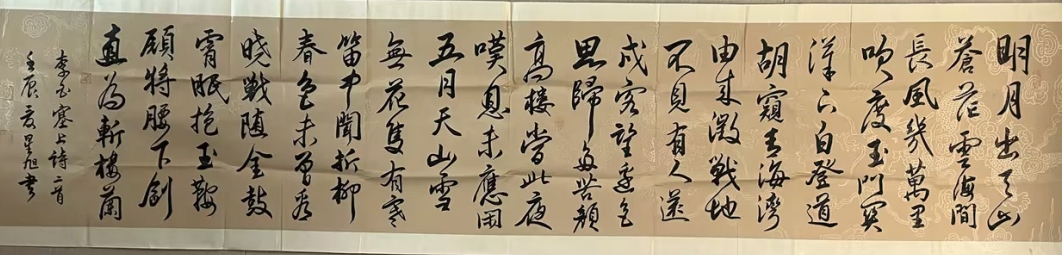 明月出天山
蒼茫雲海間
長風幾萬里
吹度玉門関
漢下白登道
胡窺青海灣
由來徵戰地
不見有人還
戍客望邊色
思歸多苦顏
高樓當此夜
嘆息未應閑
五月天山雪
無花隻有寒
笛中聞折柳
春色未曾看
曉戰隨金鼓
宵眠抱玉鞍
願將腰下劍
直為斬樓蘭
李白塞上詩二首
夏呈旭書